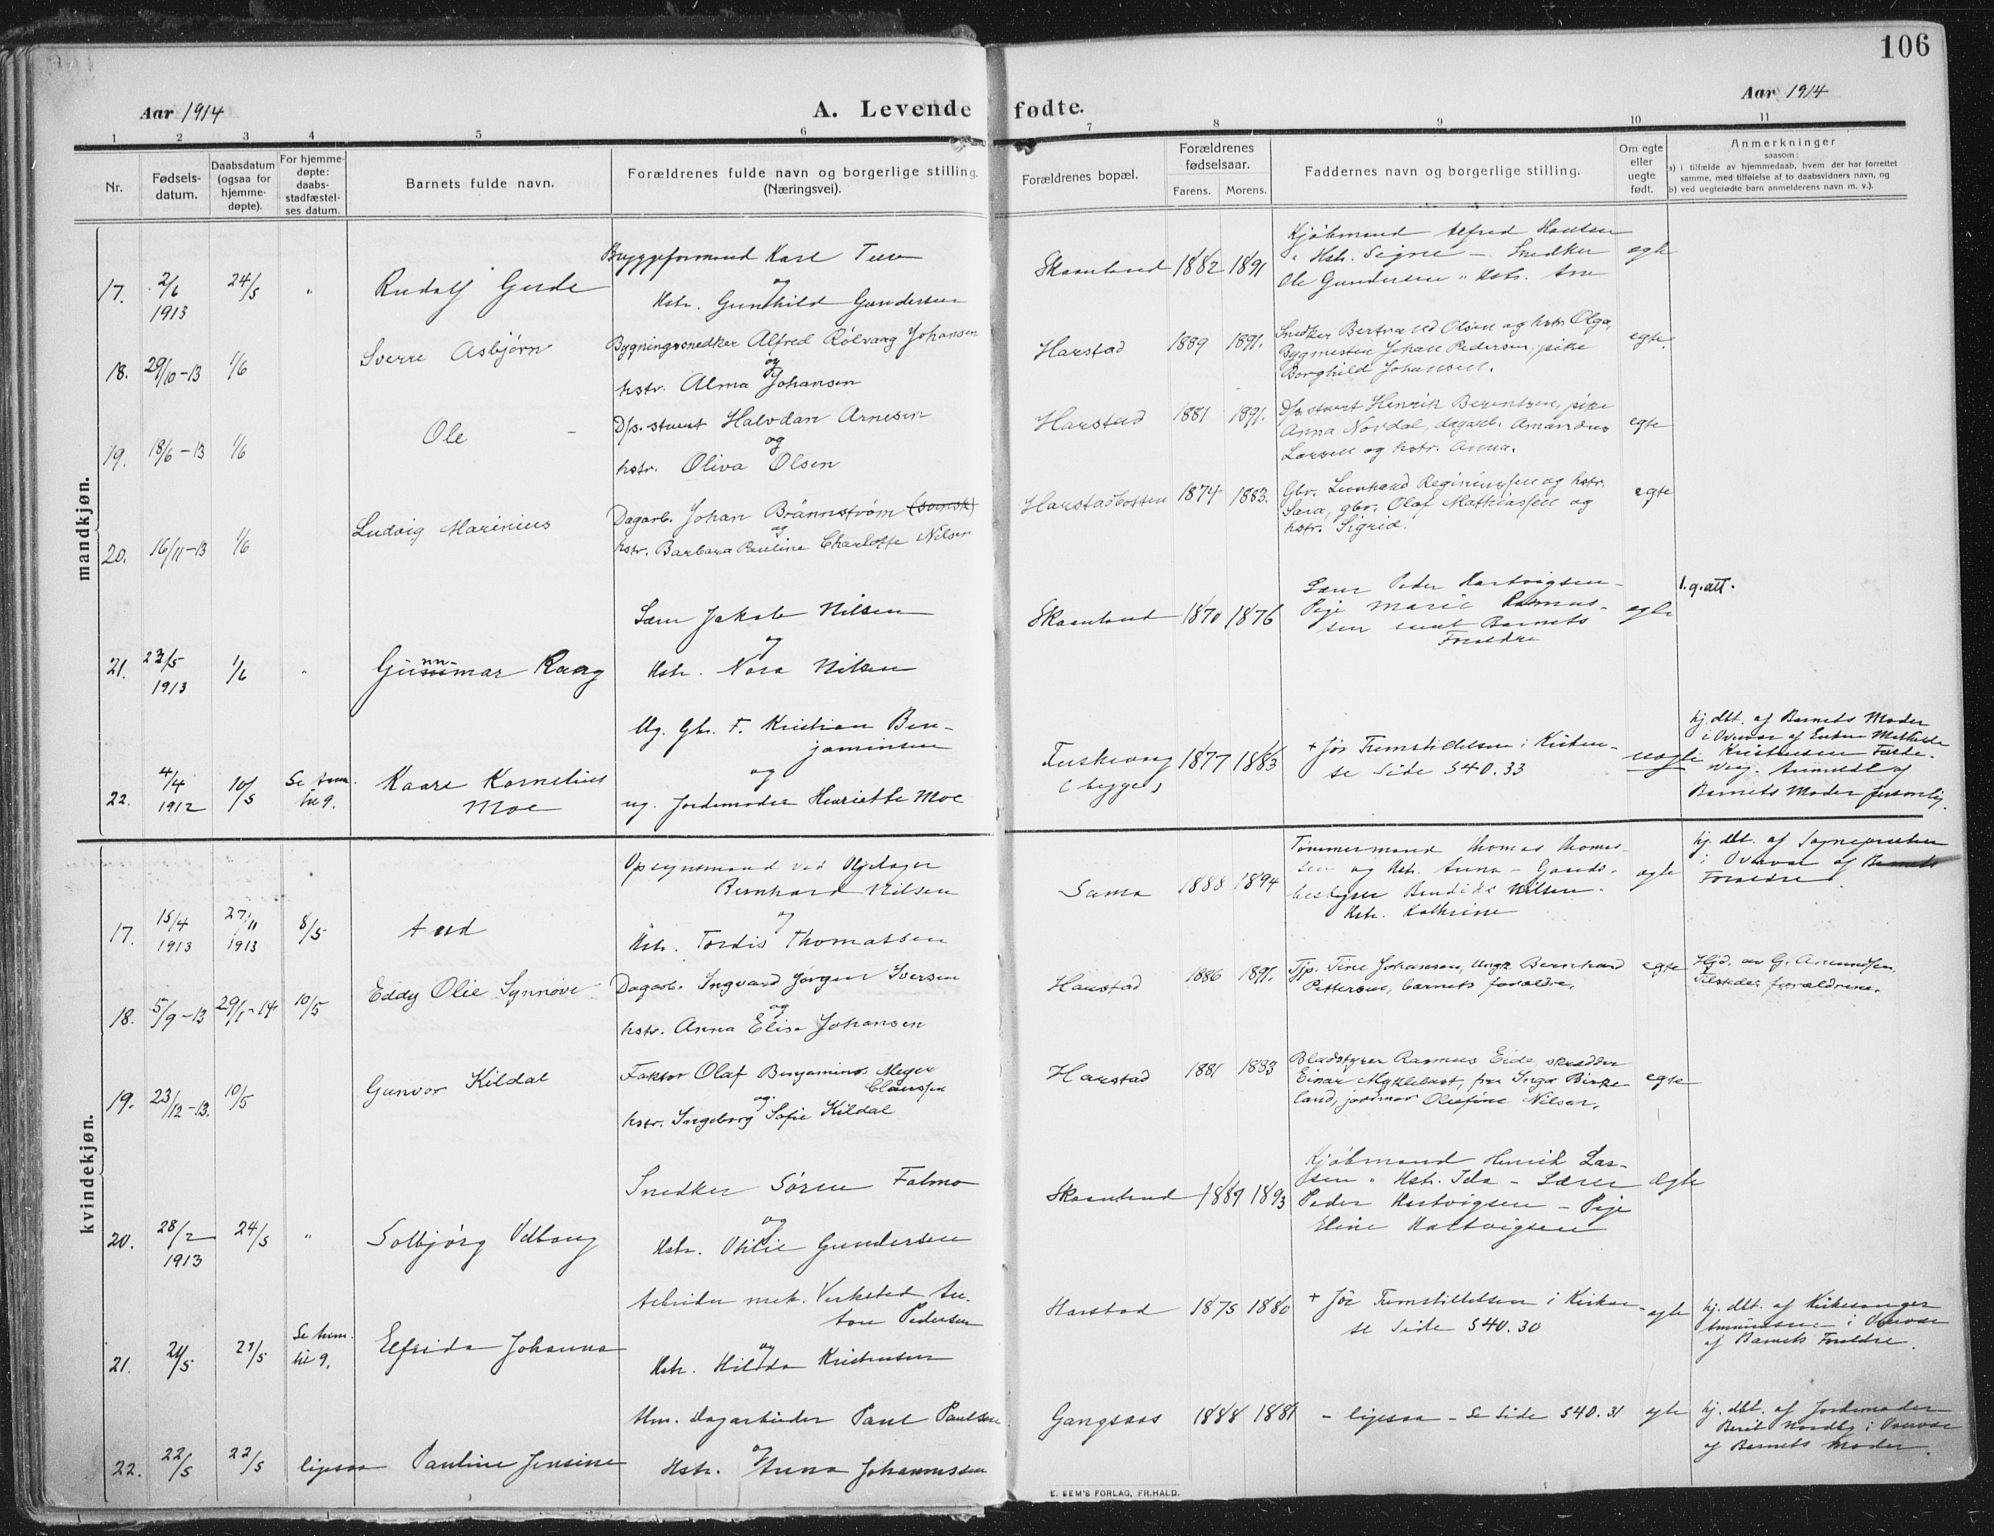 106
Aar 1914
A. Levende fødte.
Aar 1914
1 2 3 4 5 6 7 8 9 10 11
Nr.
Fødsels-
datum.
Daabsdatum
(ogsaa for
hjemme-
døpte).
For hjemme-
døpte:
daabs-
stadfæstel-
ses datum.
Barnets fulde navn.
Forældrenes fulde navn og borgerlige stilling.
(Næringsvei).
Forældrenes bopæl.
Forældrenes
fødselsaar.
Farens. Morens.
Faddernes navn og borgerlige stilling.
Om egte
eller
uegte
født.
Anmerkninger
saasom:
a) i tilfælde av hjemmedaab, hvem der har forrettet
samme, med tilføielse af to daabsvidners navn, og
b) ved uegtefødte barn anmelderens navn m. v.).
mandkjøn.
17.
2/6
1913
24/5
"
Rudolf Gude
Byggeformand Karl
og
Hstr. Gunhild Gundersen
Skaanland
1882 1891
Kjøbmand Alfred Hansen
Hstr. Signe - Snedker
Ole Gundersen " Hstr. Ane
egte
18.
29/10-13
1/6
Sverre Asbjørn
Bygningssnedker Alfred Rølvaag Johansen
og
hstr. Alma Johansen
Harstad
1889 1891.
Snedker Bertræed Olsen og hstr. Olga,
Bygmester Johan Pedersen, pike
Borghild Johansen.
egte.
19.
18/6-13
1/6
Ole
D/s. stuert Halvdan Arnesen
og
hstr. Oliva Olsen
Harstad
1881 1891.
D/s. stuert Henrik Berentsen, pike
Anna Nordal, dagarb. Amandus
Larsen og hstr. Anna.
egte
20.
16/11-13
1/6
Ludvig Marinius
Dagarb. Johan Brännström (svensk)
og
hstr. Barbara Pauline Charlotte Nilsen
Harstadbotten
1874 1883.
Gbr. Leonhard Reginiussen og hstr.
Sara, gbr. Olaf Mathiassen og
hstr. Sigrid.
egte
21.
23/5
1913
1/6
"
Gunnmar Raag
Lærer Jakob Nilsen
og
Hstr. Nora Nilsen
Skaanland
1870 1876
Lærer Peder Hartvigsen -
Pige Marie Rasmus-
sen samt Barnets
Forældre
egte
1.g.att.
22.
4/4
1912
10/5
Se Anm.
til 9.
Kaare Kornelius
Moe
Ug. Gbr. F. Kristian Ben-
jaminsen
og
ug. Jordemoder Henriette Moe
(bygger)
1877 1883
+ for Fremstillelsen i Kirken
se Side 540.33
uegte
hj. dbt. af Barnets Moder
i Overvær af Enken Mathilde
Kristensen
Anmeldt af
Barnets Moder personlig.
kvindekjøn.
17.
15/4
1913
27/11
1913
8/5
Aud
Opsynsmand ved Oljelager
Bernhard Nilsen
og
Hstr. Tordis Thomassen
Sama
1888 1894
Tømmermand Thomas Thomas-
sen og Hstr. Anna - Gaards-
bestyrer Bendiks Nilsen.
Hstr. Kathrine
egte
hj. dbt. af Sognepresten
i Overvær af Barnets
Forældre.
18.
5/9-13
29/1-14
10/5
Eddy Olie Synnøve
Dagarb. Ingvard Jørgen Iversen
og
hstr. Anna Elise Johansen
Harstad
1886 1891.
Tjp. Tine Johansen, ungk. Bernhard
Pettersen, barnets forældre.
egte
Hjd. av G. Amundsen.
Tilstede: forældrene.
19.
23/12-13.
10/5
Gunvor Kildal
Faktor Olaf Benjamins. Meyer
Claussen
og
hstr. Ingeborg Sofie Kildal
Harstad
1881 1883
Bladstyrer Rasmus Eide, skrædder
Einar Myklebust, fru Inga Birke-
land, jordmor Olefine Nilsen.
egte
20.
28/2
1913
24/5
"
Solbjørg Valborg
Snedker Sören Falmo
og
Hstr. Otilie Gundersen
Skaanland
1889 1893
Kjøbmand Henrik Lar-
sen " Hstr. Ida - Lærer
Peder Hartvigsen - Pige
Eline Hartvigsen
Ægte
21.
21/5
21/5
Se Anm.
til 9.
Elfrida Johanna
Arbeider mek. Verksted An-
ton Pedersen
og
Hstr. Hilda Kristensen
Harstad
1875 1880
+ for Fremstillelsen i Kirken
se Side 540.30
egte
hj. dbt. af Kirkesanger
Amundsen i Overvær
af Barnets Forældre.
22.
22/5
22/5
ligesaa
Pauline Jensine
Dagarbeider Paul Paulsen
og
Hstr. Anna Johannessen
Gangsaas
1888 1881
- ligesaa - Se Side 540.31
egte
hj. dbt. af Jordemoder
Berit Nordby i Overvær
af Barnets Moder.
E. SEM'S FORLAG, FR.HALD.